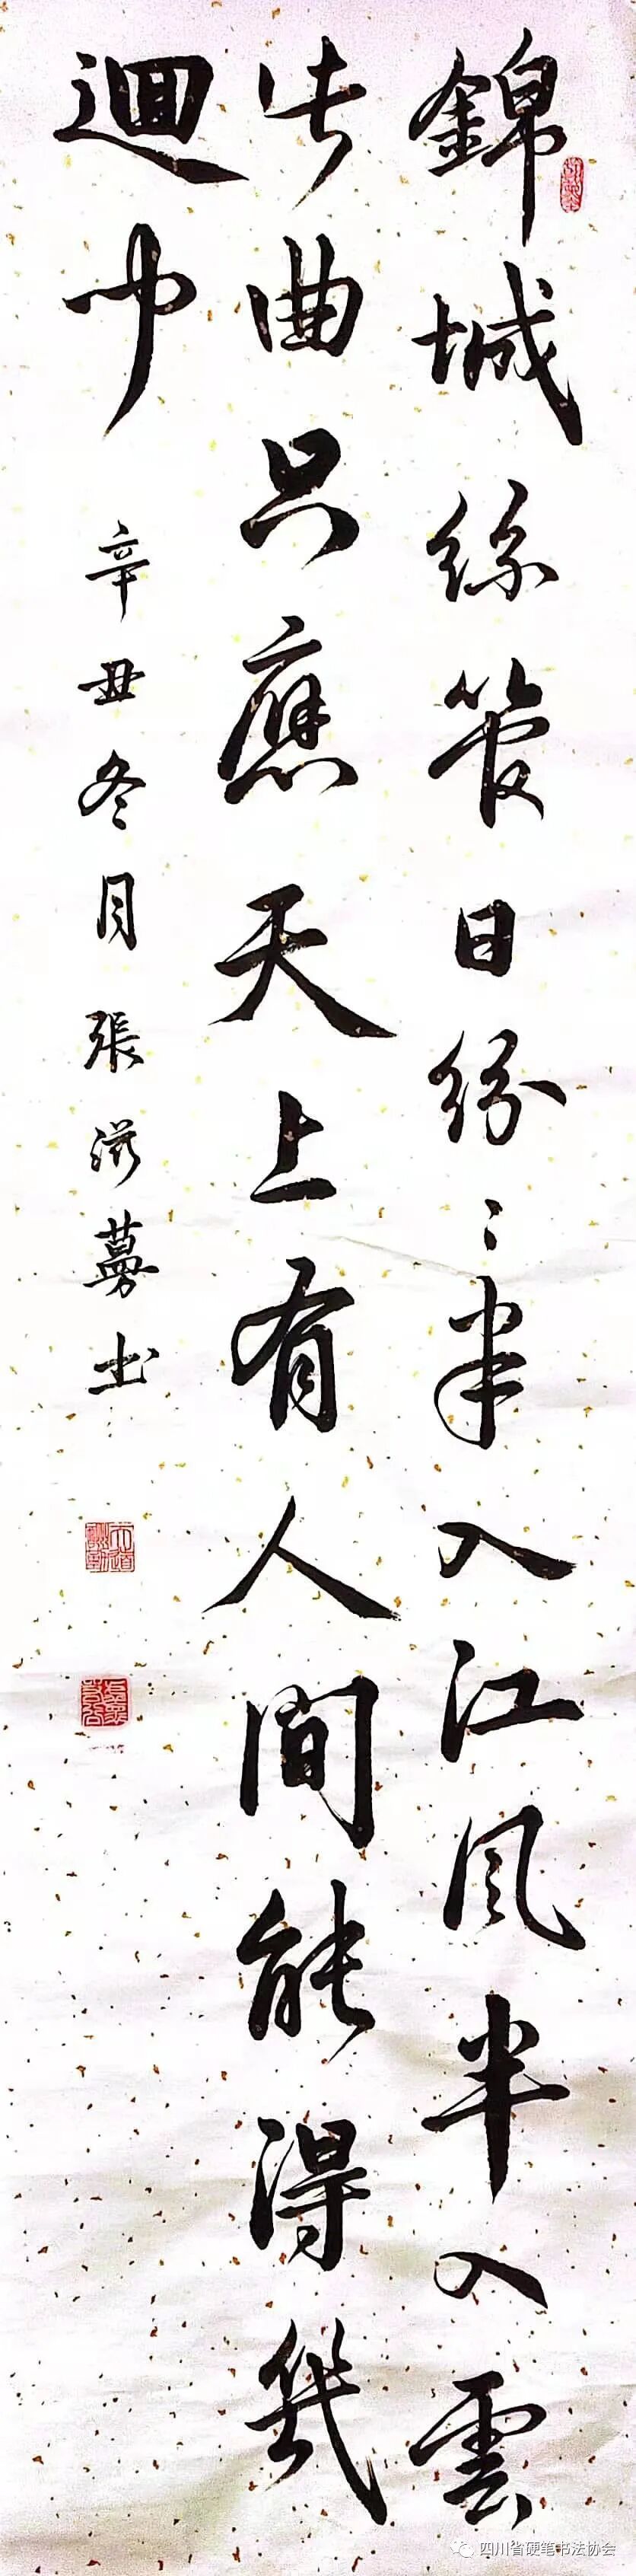 錦城絲管日紛〻半入江風半入雲
此曲只應天上有人間能得幾
迴聞
辛丑冬月張滋蔓书
四川省硬笔书法协会